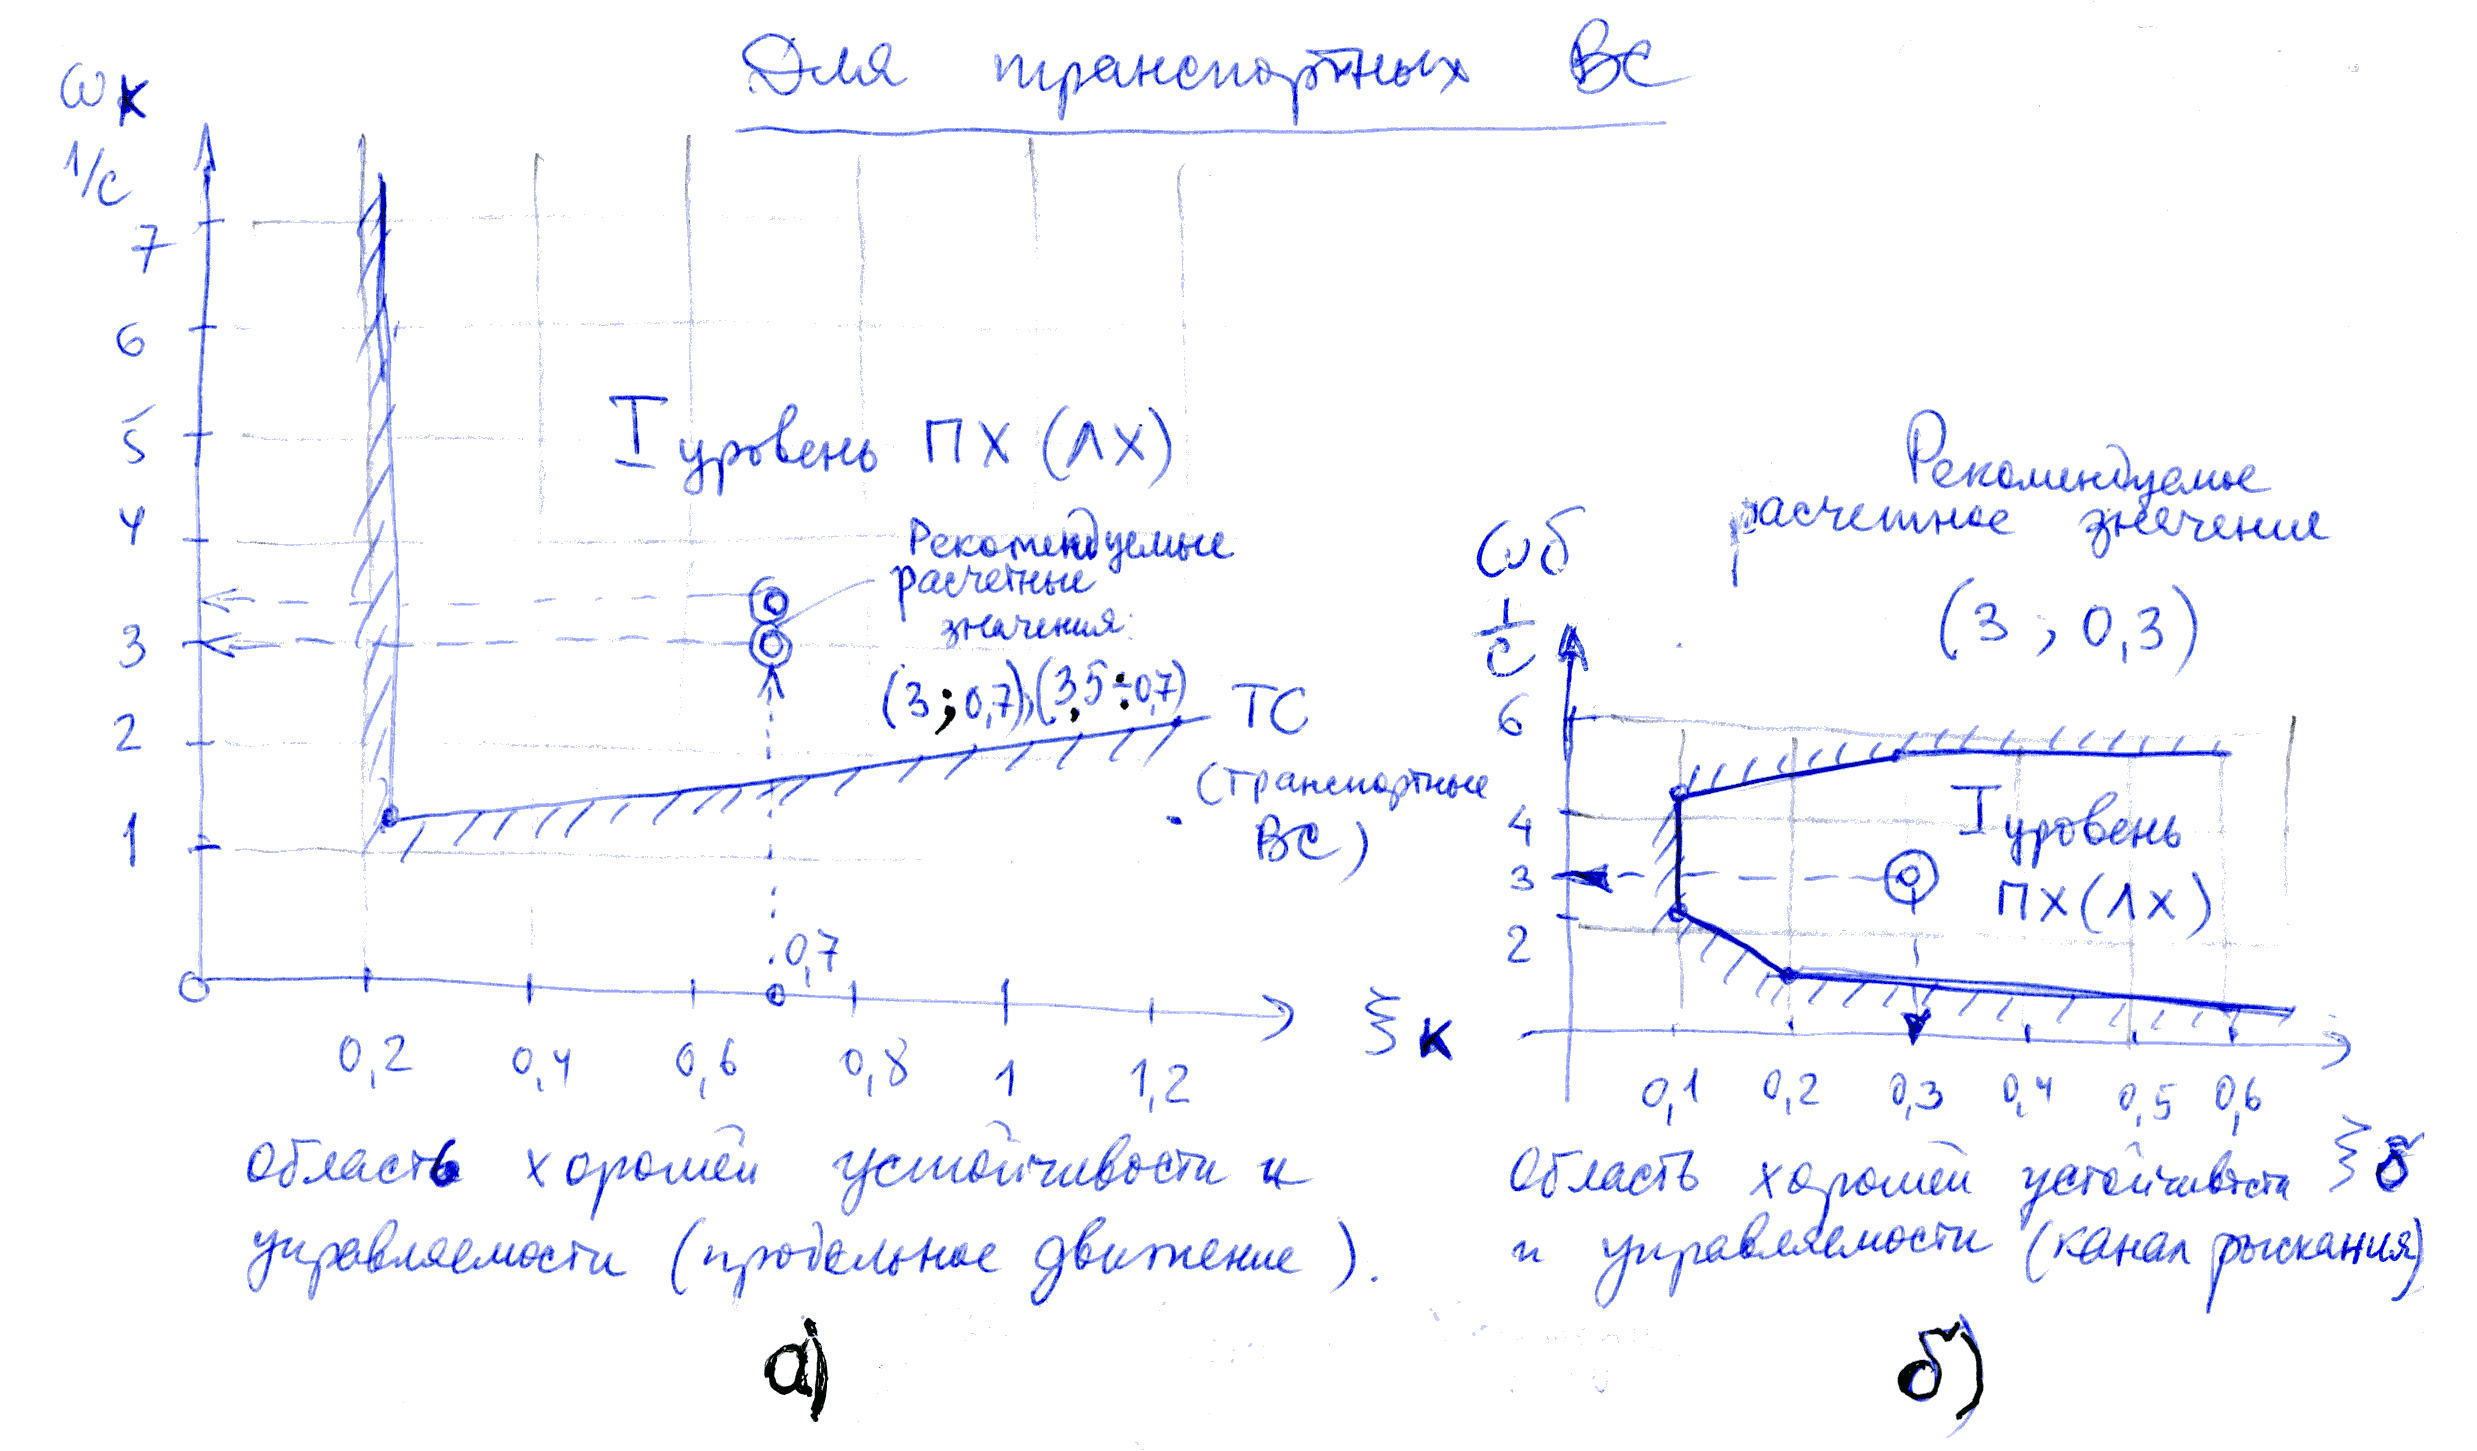 Для транспортных ВС
ωк
1/с
7
6
5
4
3
2
1
0,2 0,4 0,6 0,8 1 1,2
0,7
ξк
I уровень ПХ (ЛХ)
Рекомендуемые
расчетные
значения
(3;0,7),(3,5÷0,7)
ТС
(транспортные
ВС)
Область хорошей устойчивости и
управляемости (продольное движение).
а)
Рекомендуемое
расчетное значение
(3; 0,3)
ωб
1/с
6
4
3
2
I уровень
ПХ (ЛХ)
0,1 0,2 0,3 0,4 0,5 0,6
ξб
Область хорошей устойчивости
и управляемости (канал рыскания)
б)